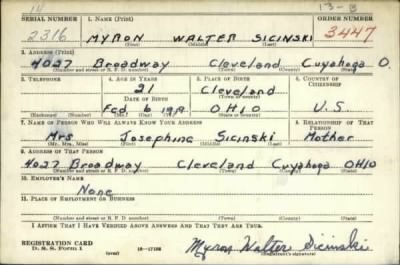 14 13-B
SERIAL NUMBER 1. NAME (Print) ORDER NUMBER
2316 MYRON WALTER SICINSKI 3447
(First) (Middle) (Last)
2. ADDRESS (Print)
4027 Broadway Cleveland Cuyahoga O.
(Number and street or R. F. D. number) (Town) (County) (State)
3. TELEPHONE 4. AGE IN YEARS 5. PLACE OF BIRTH 6. COUNTRY OF CITIZENSHIP
21 Cleveland
DATE OF BIRTH (Town or county)
Feb 6 1919 OHIO U.S.
(Exchange) (Number) (Mo.) (Day) (Yr.) (State or country)
7. NAME OF PERSON WHO WILL ALWAYS KNOW YOUR ADDRESS 8. RELATIONSHIP OF THAT PERSON
Mrs Josephine Sicinski Mother
(Mr., Mrs., Miss) (First) (Middle) (Last)
9. ADDRESS OF THAT PERSON
4027 Broadway Cleveland Cuyahoga OHIO
(Number and street or R. F. D. number) (Town) (County) (State)
10. EMPLOYER'S NAME
None
11. PLACE OF EMPLOYMENT OR BUSINESS
(Number and street or R. F. D. number) (Town) (County) (State)
I AFFIRM THAT I HAVE VERIFIED ABOVE ANSWERS AND THAT THEY ARE TRUE.
REGISTRATION CARD
D. S. S. Form 1 (over) Myron Walter Sicinski
(Registrant's signature)